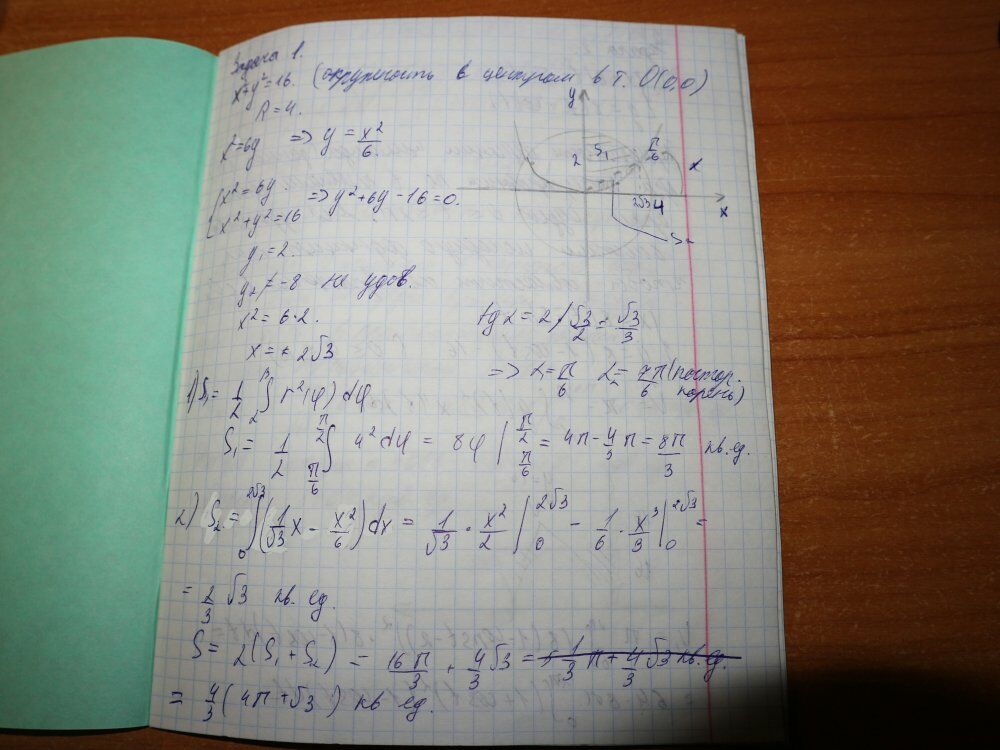 Задача 1.
x²+y²=16. (окружность в центром в т. O(0,0)
R=4.
x²=6y => y = x²/6.
{x²=6y
x²+y²=16 => y²+6y-16=0.
y₁=2.
y₂≠-8 не удов.
x²=6·2.
x=± 2√3
y
2
S₁
π/6
x
2√3 4
x
S₂
tg α = 2/√3/2 = √3/3
=> α₁=π/6 α₂=7π/6 (постор. корень)
1) S₁= 1/2 ∫ r²(φ) dφ
S₁= 1/2 ∫_{π/6}^{π/2} 4² dφ = 8φ |_{π/6}^{π/2} = 4π - 4/3 π = 8π/3 кв.ед.
2) S₂ = ∫_0^{2√3} (1/√3 x - x²/6) dx = 1/√3 · x²/2 |_0^{2√3} - 1/6 · x³/3 |_0^{2√3} =
= 2/3 √3 кв. ед.
S = 2(S₁+S₂) = 16π/3 + 4/3 √3 =
= 4/3 (4π+√3) кв ед.